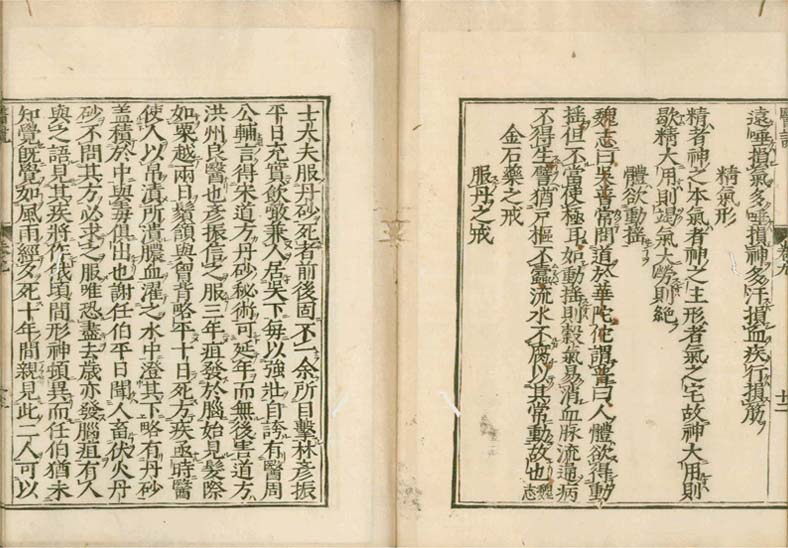 遠唾損氣多唾損神多汗損血疾行損筋
精氣形
精者神之本氣者神之主形者氣之宅故神大用則
歇精大用則竭氣大勞則絶
體欲動揺
魏志曰吳普常問道於華陀佗謂普曰人體欲得動
揺但不當使極耳如動揺則穀氣易消血脉流通病
不得生譬猶戸樞不蠹流水不腐以其常動故也魏志
金石藥之戒
服丹之戒
士大夫服丹砂死者前後固不一余所目擊林彦振
平日充實飲敵兼人居吳下每以強壯自誇有醫周
公輔言得宋道方丹砂秘術可延年而無後害道方
洪州良醫也彦振信之服三年疽發於腦始見髮際
如粟越兩日頷頷與胷背略平十日死方疾亟時醫
使人以帛漬所潰膿血濯之水中澄其下略有丹砂
盖積於中與毒俱出也謝任伯平日聞人畜伏火丹
砂不問其方必求之服唯恐盡去歲亦發腦疽有人
與之語見其疾將作俄頃間形神頓異而任伯猶未
知覺既覺如風雨經夕死十年間親見此二人可以
醫説
卷九
十二